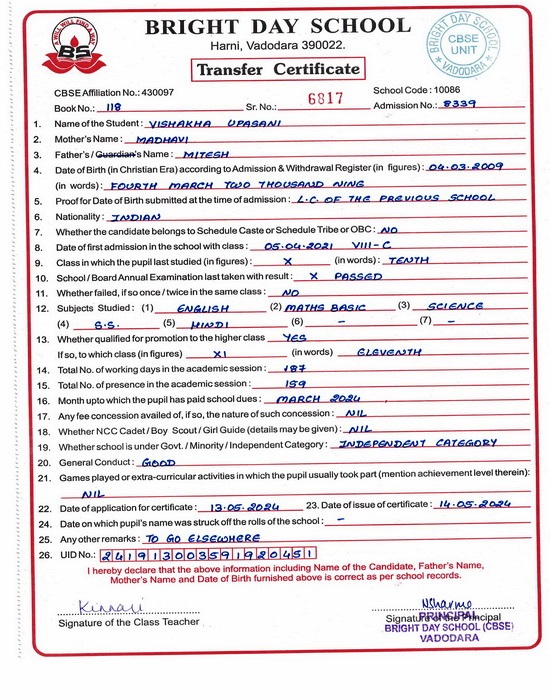 WILL WILL FIND A WAY
BS
BRIGHT DAY SCHOOL
Harni, Vadodara 390022.
Transfer Certificate
BRIGHT DAY SCHOOL
CBSE
UNIT
VADODARA
CBSE Affiliation No.: 430097 School Code : 10086
Book No.: 118 Sr. No.: 6817 Admission No.: 8339
1. Name of the Student : VISHAKHA UPASANI
2. Mother's Name : MADHAVI
3. Father's / Guardian's Name : MITESH
4. Date of Birth (in Christian Era) according to Admission & Withdrawal Register (in figures) : 04.03.2009
(in words) : FOURTH MARCH TWO THOUSAND NINE
5. Proof for Date of Birth submitted at the time of admission : L.C. OF THE PREVIOUS SCHOOL
6. Nationality : INDIAN
7. Whether the candidate belongs to Schedule Caste or Schedule Tribe or OBC : NO
8. Date of first admission in the school with class : 05.04.2021 VIII-C
9. Class in which the pupil last studied (in figures) : X (in words) : TENTH
10. School / Board Annual Examination last taken with result : X PASSED
11. Whether failed, if so once / twice in the same class : NO
12. Subjects Studied : (1) ENGLISH (2) MATHS BASIC (3) SCIENCE
(4) S.S. (5) HINDI (6) – (7) –
13. Whether qualified for promotion to the higher class YES
If so, to which class (in figures) XI (in words) ELEVENTH
14. Total No. of working days in the academic session : 187
15. Total No. of presence in the academic session : 159
16. Month upto which the pupil has paid school dues : MARCH 2024
17. Any fee concession availed of, if so, the nature of such concession : NIL
18. Whether NCC Cadet / Boy Scout / Girl Guide (details may be given) : NIL
19. Whether school is under Govt. / Minority / Independent Category : INDEPENDENT CATEGORY
20. General Conduct : GOOD
21. Games played or extra-curricular activities in which the pupil usually took part (mention achievement level therein):
NIL
22. Date of application for certificate : 13.05.2024 23. Date of issue of certificate : 14.05.2024
24. Date on which pupil's name was struck off the rolls of the school : –
25. Any other remarks : TO GO ELSEWHERE
26. UID No.: 241913003591920451
I hereby declare that the above information including Name of the Candidate, Father's Name,
Mother's Name and Date of Birth furnished above is correct as per school records.
Kinnari NSharma
Signature of the Class Teacher Signature of the Principal
PRINCIPAL
BRIGHT DAY SCHOOL (CBSE)
VADODARA